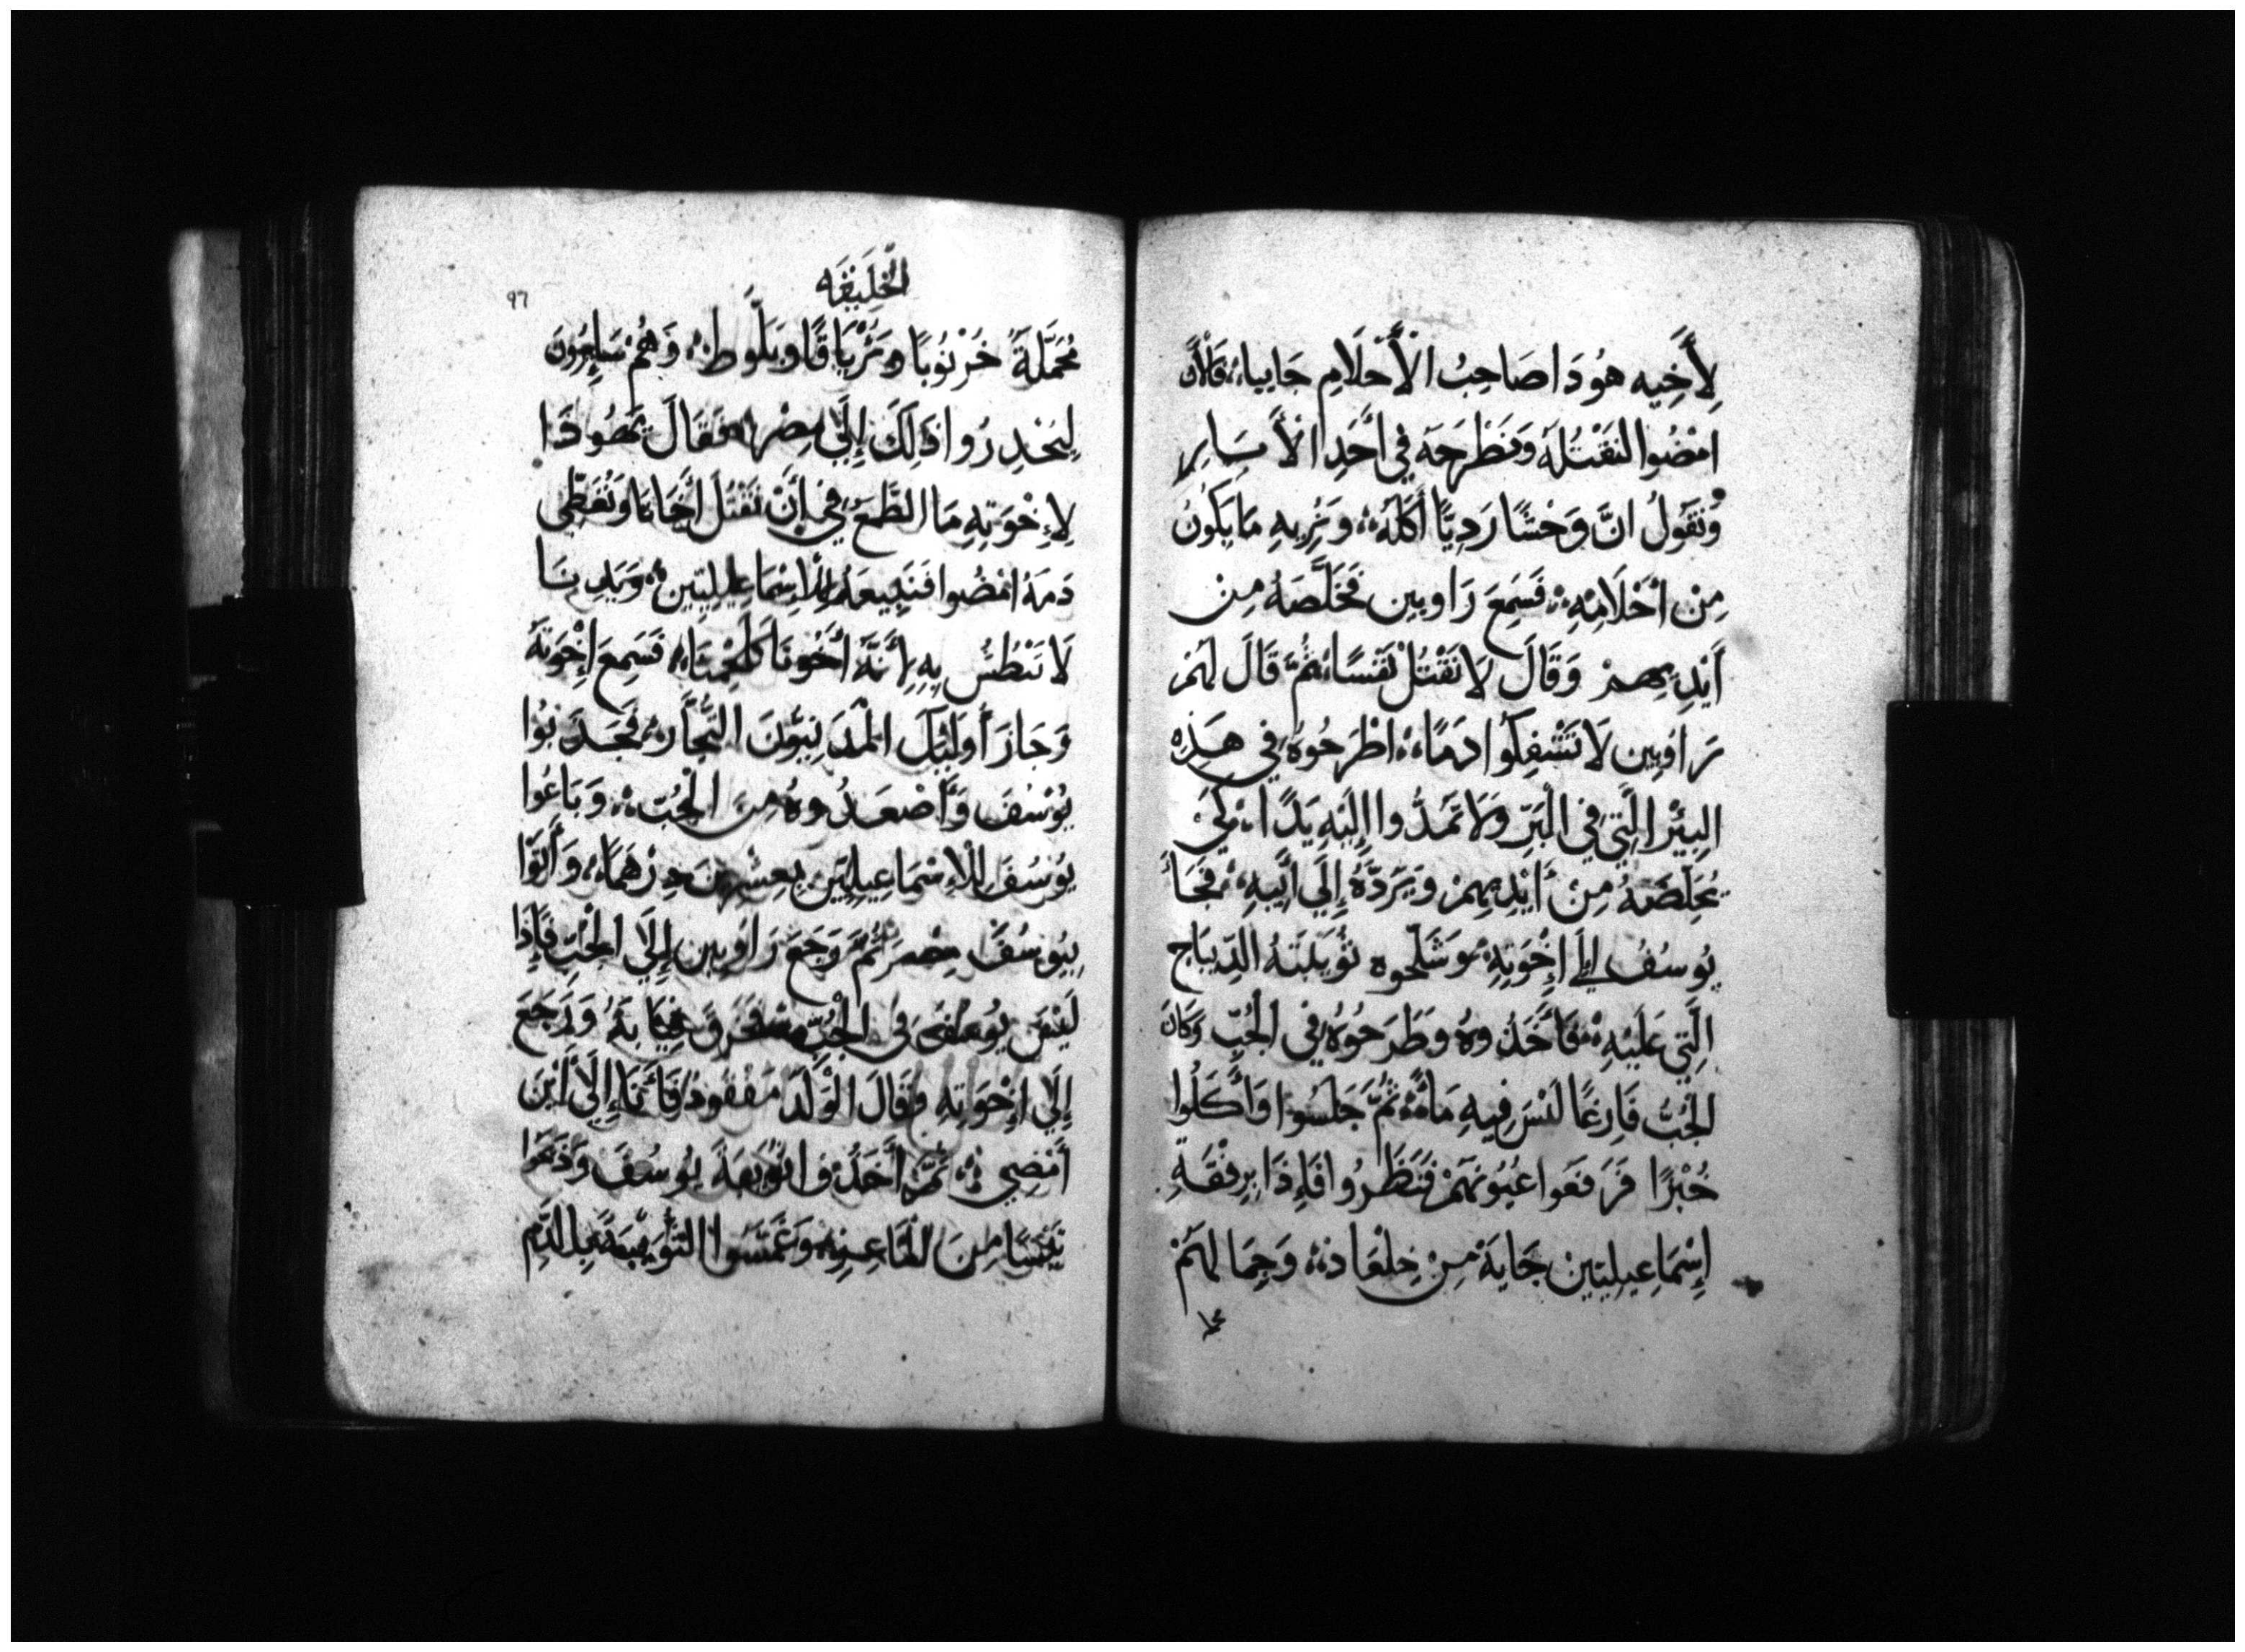 لِأَخِيه هُوَدَا صَاحِبُ الْأَحْلَامِ جَايِياً، فَالْأَن
امْضُوا لنَقْتُلَهُ وَنَطْرَحَهُ فِي أَحَدِ الْأَبْيَارِ
وَنَقُولُ انَّ وَحْشًا رَدِيًّا أَكَلَهُ، وَنَرِيهِ مَا يَكُونُ
مِنْ أَحْلَامِهِ، فَسَمِعَ رَاوبِين فَخَلَّصَهُ مِن
أَيْدِيهِمْ وَقَالَ لَا نَقْتُلْ نَفْسًا، ثُمَّ قَالَ لَهُمْ
رَاوبِين لَا تَسْفِكُوا دَمًا، اطْرَحُوهُ فِي هَذِه
البِيْرِ الَّتِي فِي الْبَرِّ وَلَا تَمَدُّوا إِلَيْهِ يَدًا، لِكَيْ
يُخَلِّصَهُ مِنْ أَيْدِيهِمْ وَيَرَدَّهُ إِلَي أَبِيهِ، فَجَاءَ
يُوسُفُ إِلَي إِخْوَتِهِ، وَشَلَّحُوه ثُوَيْبَتَهُ الدِّيبَاج
الَّتِي عَلَيْهِ، فَأَخَذُوهُ وَطَرَحُوهُ فِي الْجُبِّ وَكَانَ
الْجُبُّ فَارِغًا لَيْسَ فِيهِ مَاءٌ، ثُمَّ جَلَسُوا وَأَكَلُوا
خُبْزًا فَرَفَعَوا عُيُونَهُمْ فَنَظَرُوا فَإِذَا بِرِفْقَةِ
إِسْمَاعِيلِيِّين جَايَةً مِنْ جِلْعَاد، وَجِمَالهُمْ
الْخَلِيقَه
٩٦
مُحَمَّلَةً خَرْنُوبًا وَتَرْيَاقًا وَبَلُّوط، وَهُمْ سَايِرُونَ
لِيَحْدِرُوا ذَلِكَ إِلَي مِصْر، فَقَالَ يَهُوذَا
لِإِخْوَتِهِ مَا الطَّمَعُ فِي أَنْ نَقْتُلَ أَخَانَا وَنُغَطِّي
دَمَهُ امْضُوا فَنَبِيعَهُ لِلْإِسْمَاعِيلِيِّين، وَيَدينَا
لَا تَبْطُش بِهِ لِأَنَّهُ أَخُونَا كَلَحْمِنَا، فَسَمِعَ إِخْوَتَهُ
وَجَازَ أُولَئِكَ الْمَدَنِيُّونَ التُّجَّار، فَجَذَبُوا
يُوسُفَ وَأَصْعَدُوهُ مِنَ الْجُبّ، وَبَاعُوا
يُوسُفَ لِلْإِسْمَاعِيلِيِّين بِعِشْرِينَ دِرْهَمًا، وَأَتَوْا
بِيُوسُفَ مِصْر ثُمَّ رَجَعَ رَاوبِين إِلَي الْجُبِّ فَإِذَا
لَيْسَ يُوسُف فِي الْجُبِّ فَخَرَقَ ثِيَابَهُ وَرَجَعَ
إِلَي إِخْوَاتِهِ وَقَالَ الْوَلَدُ مَفْقُودٌ فَأَنَا إِلَي أَيْنَ
أَمْضِي، ثُمَّ أَخَذُوا ثُوَيْبَةَ يُوسُفَ وَذَبَحُوا
تَيْسًا مِنَ الْمَاعِز، وَغَمَسُوا الثُّوَيْبَةَ بِالدَّمِ